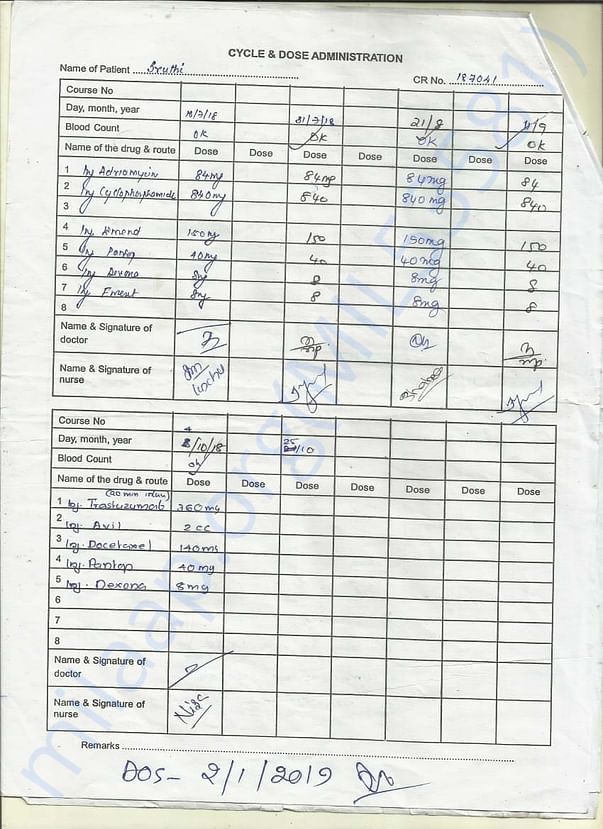 CYCLE & DOSE ADMINISTRATION
Name of Patient Sruthi CR No. 187041
Course No
Day, month, year 10/7/18 31/7/18 21/8 11/9
Blood Count OK OK OK OK
Name of the drug & route Dose Dose Dose Dose Dose Dose Dose
1 Inj Adriamycin 84mg 84mg 84mg 84
2 Inj Cyclophosphamide 840mg 840 840mg 840
3
4 Inj 150mg 150 150mg 150
5 Inj 40mg 40 40mg 40
6 Inj Dexona 8mg 8 8mg 8
7 Inj 8mg 8 8mg 8
8
Name & Signature of
doctor
Name & Signature of
nurse
Course No
Day, month, year /10/18 25/10
Blood Count
Name of the drug & route Dose Dose Dose Dose Dose Dose Dose
1 Inj. Trastuzumab 360mg
2 Inj. Avil 2cc
3 Inj. Docetaxel 140mg
4 Inj. Pantop 40mg
5 Inj. Dexona 8mg
6
7
8
Name & Signature of
doctor
Name & Signature of
nurse
Remarks
DOS- 2/1/2019